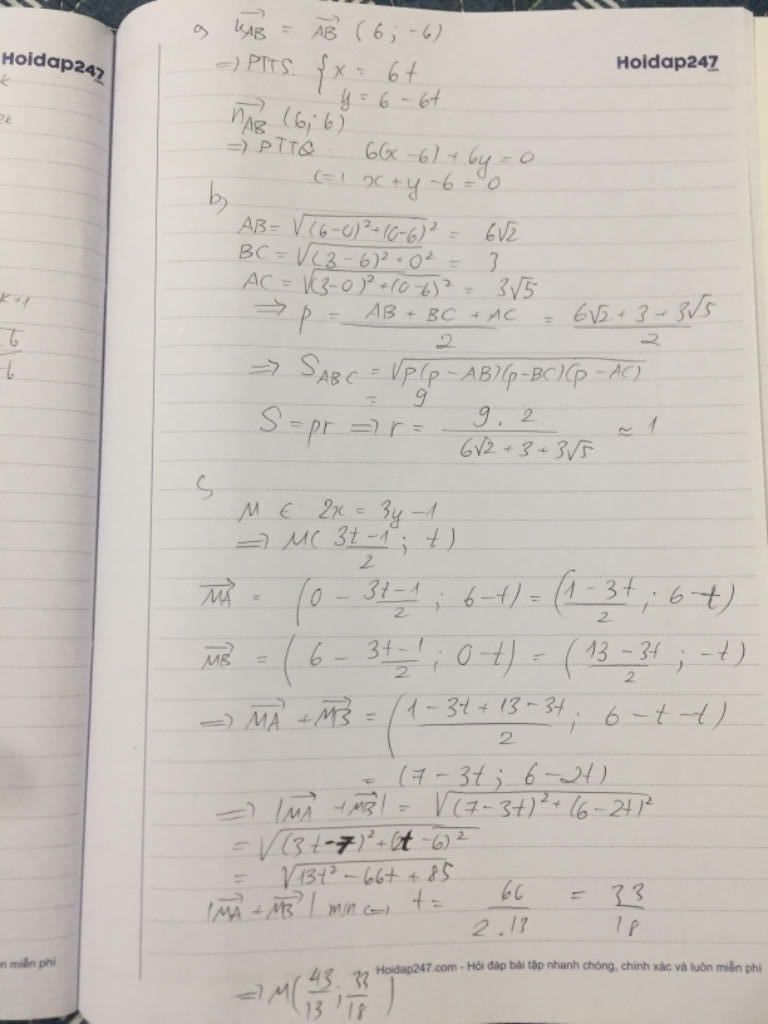 Hoidap247
Hoidap247
a, u⃗_AB = A⃗B (6; -6)
=> PTTS. { x = 6t
y = 6 - 6t
n⃗_AB (6; 6)
=> PTTQ: 6(x - 6) + 6y = 0
(=) x + y - 6 = 0
b)
AB = √((6-0)²+(0-6)²) = 6√2
BC = √((3-6)²+0²) = 3
AC = √((3-0)²+(0-6)²) = 3√5
=> p = (AB + BC + AC)/2 = (6√2 + 3 + 3√5)/2
=> S_ABC = √(p(p-AB)(p-BC)(p-AC))
= 9
S = pr => r = (9.2)/(6√2 + 3 + 3√5) ≈ 1
c,
M ∈ 2x = 3y - 1
=> M((3t-1)/2; t)
M⃗A = (0 - (3t-1)/2; 6-t) = ((1-3t)/2; 6-t)
M⃗B = (6 - (3t-1)/2; 0-t) = ((13-3t)/2; -t)
=> M⃗A + M⃗B = ((1-3t+13-3t)/2; 6-t-t)
= (7-3t; 6-2t)
=> |M⃗A + M⃗B| = √((7-3t)²+(6-2t)²)
= √((3t-7)²+(2t-6)²)
= √(13t²-66t+85)
|M⃗A + M⃗B| min <=> t = 66/(2.13) = 33/18
n miễn phí
Hoidap247.com - Hỏi đáp bài tập nhanh chóng, chính xác và luôn miễn phí
=> M(43/13; 33/18)